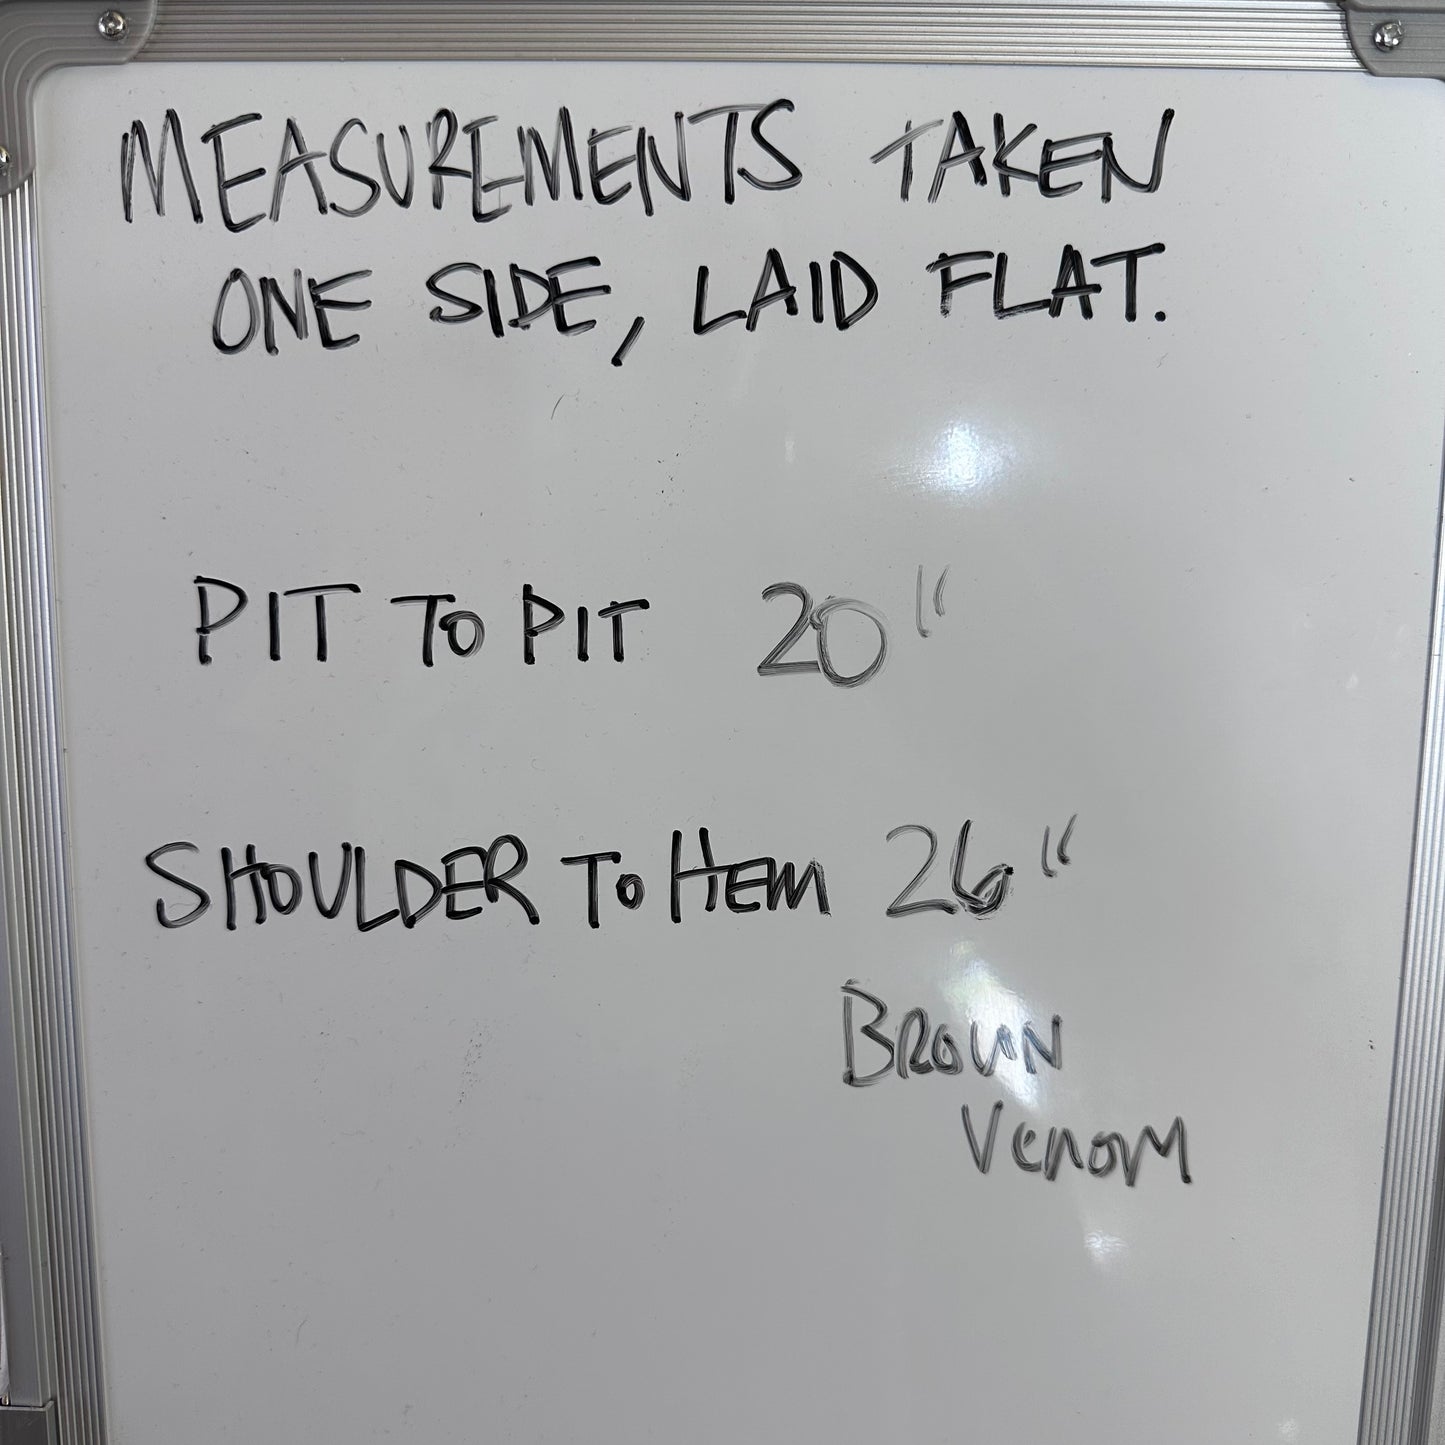 MEASUREMENTS TAKEN
ONE SIDE, LAID FLAT.
PIT TO PIT 20"
SHOULDER TO HEM 26"
BROWN
VENOM